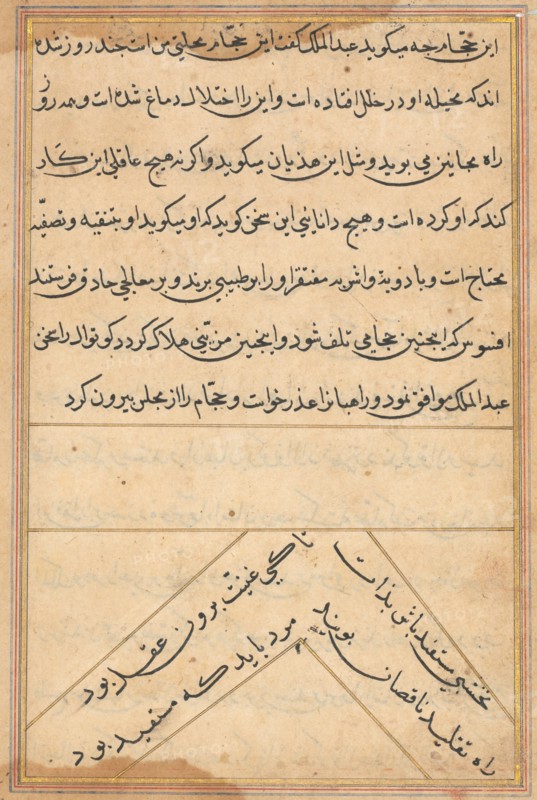 این حجّام چه میکوید عبدالملک کفت این حجّام محلتی من است چند روز شده
اند که مخیله او در خلل افتاده است و این را اختلال دماغ شده است و همه روز
راه مجانین می بوید و مثل این هذیان میکوید و اکر نه هیچ عاقلی این کار
کند که او کرده است و هیچ دانائی این سخن کوید که او میکوید او بتنقیه و تصفیه
محتاج است و بادویه و اشربه مفتقر او را بر طبیبی برند و بر معالجی حاذق فرستند
افسوس که اینچنین حجامی تلف شود و اینچنین مزینی هلاک کردد کوتوال را سخن
عبدالملک موافق نمود و راهبانرا عذر خواست و حجّام را از مجلس بیرون کرد
نخشبی مستفید باش بذات
تا کی غنیتت برون عقد بود
راه تقلید ناقصان بویند
مرد باید که مستفید بود